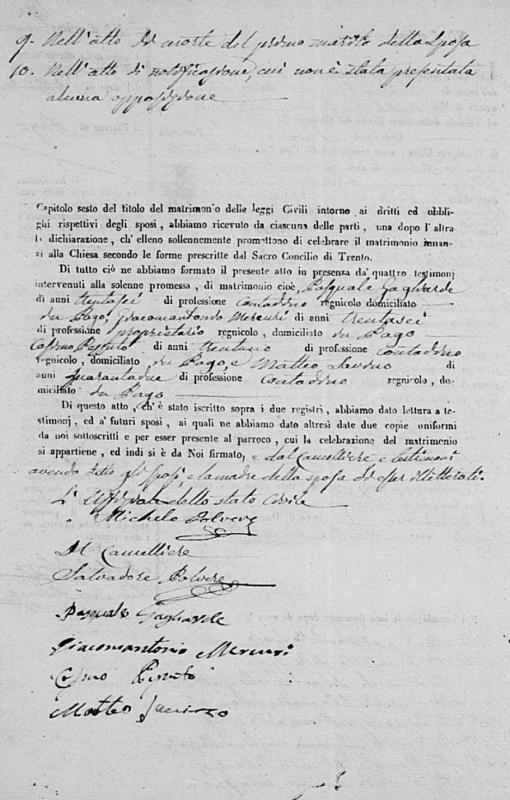 9. Nell'atto di morte del primo marito della Sposa
10. Nell'atto di notificazione, cui non è stata presentata
alcuna opposizione
Capitolo sesto del titolo del matrimonio delle leggi Civili intorno ai dritti ed obbli-
ghi rispettivi degli sposi, abbiamo ricevuto da ciascuna delle parti, una dopo l'altra
la dichiarazione, ch'elleno sollennemente promettono di celebrare il matrimonio innan-
zi alla Chiesa secondo le forme prescritte dal Sacro Concilio di Trento.
Di tutto ciò ne abbiamo formato il presente atto in presenza da' quattro testimonj
intervenuti alla solenne promessa, di matrimonio cioè, Pasquale Gagliarde
di anni trentasei di professione contadino regnicolo domiciliato
in Pago, Giacomantonio Mercuri di anni trentasei
di professione proprietario regnicolo, domiciliato in Pago
Cosmo di anni trentuno di professione contadino
regnicolo, domiciliato in Pago, e Matteo di
anni quarantadue di professione contadino regnicolo, do-
miciliato in Pago
Di questo atto, ch'è stato iscritto sopra i due registri, abbiamo dato lettura a te-
stimonj, ed a' futuri sposi, ai quali ne abbiamo dato altresì date due copie uniformi
da noi sottoscritti e per esser presente al parroco, cui la celebrazione del matrimonio
si appartiene, ed indi si è da Noi firmato, e dal Cancelliere e testimoni
avendo detto gli sposi e la madre della sposa di esser illetterati.
L'Uffiziale dello stato Civile
Michele Polvere
Il Cancelliere
Salvadore Polvere
Pasquale Gagliarde
Giacomantonio Mercuri
Cosmo
Matteo